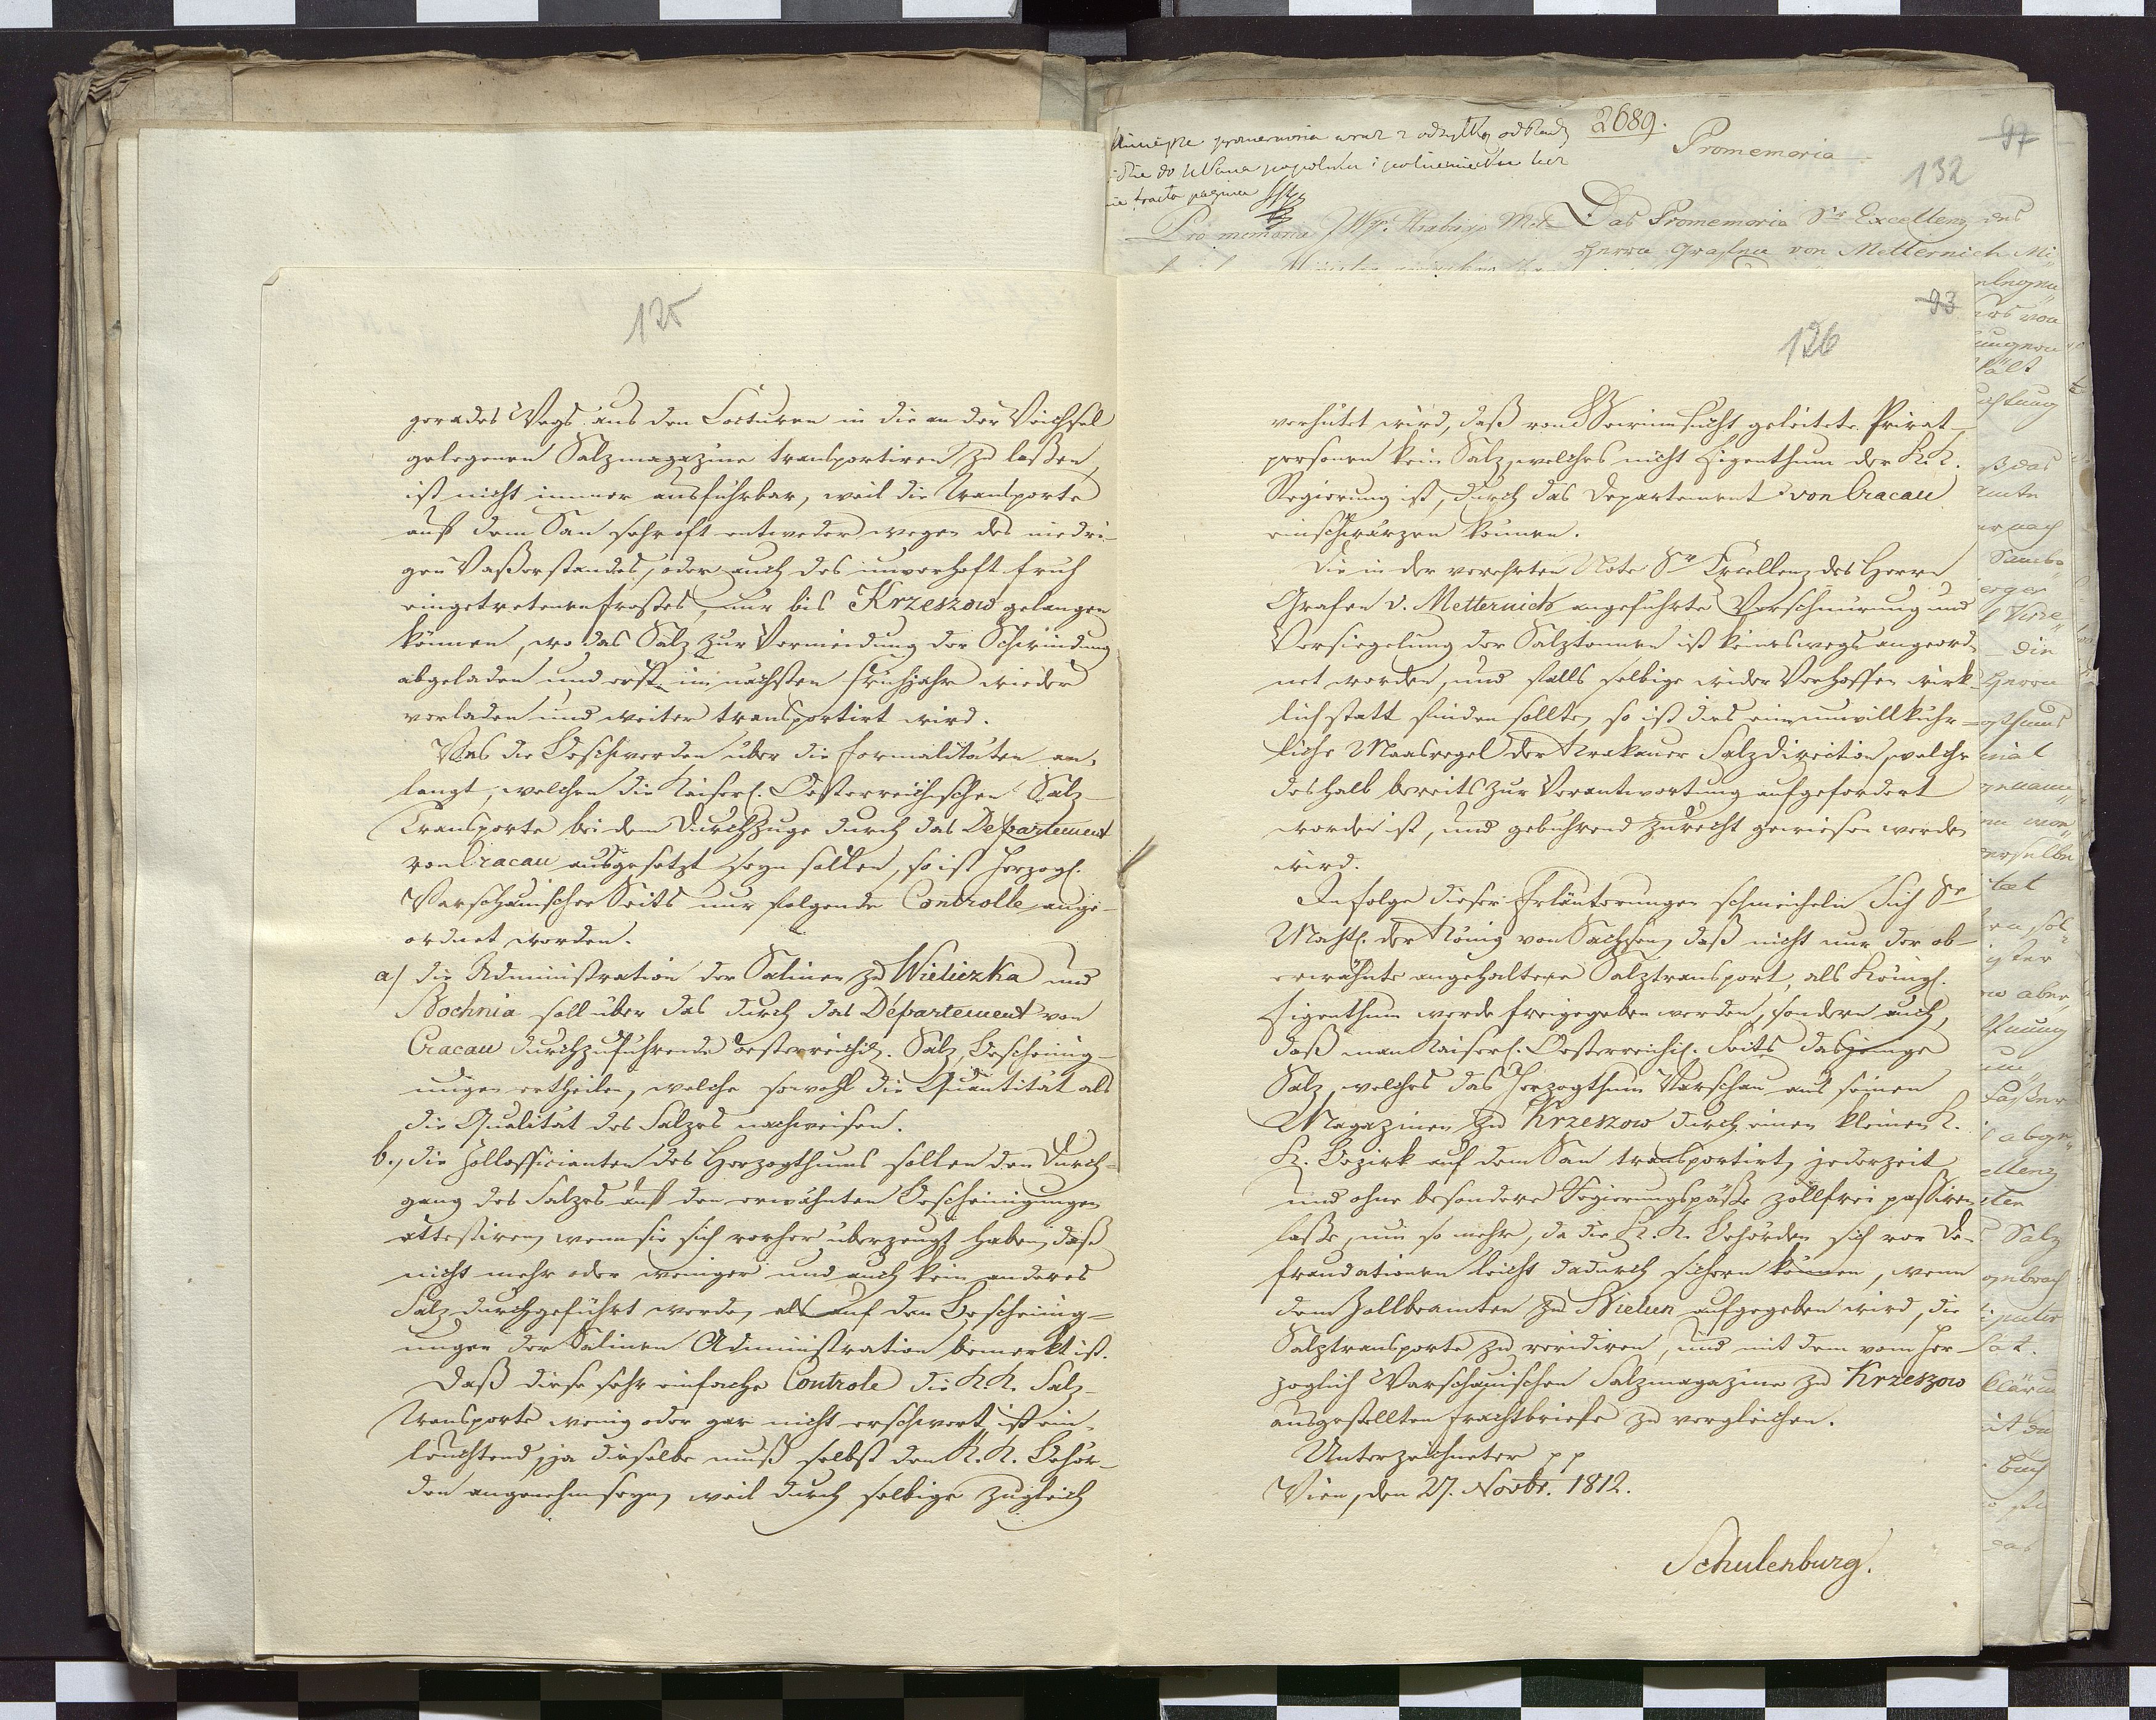 125
gerades Wegs aus den Cocturen in die an der Weichsel
gelegenen Salzmagazine transportiren zu laßen,
ist nicht immer ausführbar, weil die Transporte
auf dem San sehr oft entweder wegen des niedri-
gen Waßerstandes, oder auch des unverhoft früh
eingetretenen Frostes, nur bis Krzeszow gelangen
können, wo das Salz zur Vermeidung der Schwindung
abgeladen und erst im nächsten Frühjahr wieder
verladen und weiter transportirt wird.
Was die Beschwerden über die Formalitäten an-
langt, welchen die Kaiserl. Oesterreichischen Salz-
Transporte bei dem Durchzuge durch das Departement
von Cracau ausgesetzt seyn sollen, so ist Herzogl.
Warschauischer Seits nur folgende Controlle ange-
ordnet worden.
a) die Administration der Salinen zu Wieliczka und
Bochnia soll über das durch das Département von
Cracau durchzuführende oesterreichis. Salz, Bescheinig-
ungen ertheilen, welche sowohl die Quantität als
die Qualität des Salzes nachweisen.
b.) die Zollofficianten des Herzogthums sollen den Durch-
gang des Salzes auf den erwähnten Bescheinigungen
attestiren, wenn sie sich vorher überzeugt haben, daß
nicht mehr oder weniger und auch kein anderes
Salz durchgeführt werde, als auf den Bescheinig-
ungen der Salinen Administration bemerkt ist.
Daß diese sehr einfache Controle die K. K. Salz-
Transporte wenig oder gar nicht erschwert, ist ein-
leuchtend, ja dieselbe muß selbst den K. K. Behör-
den angenehm seyn, weil durch selbige zugleich
2689.
Promemoria
97
132
Das Promemoria Sr. Excellenz des
Herrn Grafen von Metternich Mi-
93
126
verhütet wird, daß von Gewinnsucht geleitete Privat-
personen kein Salz, welches nicht Eigenthum der K. K.
Regierung ist, durch das Departement von Cracau
einschwärzen können.
Die in der verehrten Note Sr. Excellenz des Herrn
Grafen v. Metternich angeführte Verschnürung und
Versiegelung der Salztonnen ist keineswegs angeord-
net worden, und falls selbige wider Verhoffen wirk-
lich statt finden sollte, so ist dies eine unwillkühr-
liche Maasregel der Krakauer Salzdirection, welche
deshalb bereits zur Verantwortung aufgefordert
worden ist, und gebührend zurecht gewiesen werden
wird.
In Folge dieser Erläuterungen schmeicheln Sich Sr.
Majht. der König von Sachsen, daß nicht nur der ob-
erwähnte angehaltene Salztransport, als Königl.
Eigenthum werde freigegeben werden, sondern auch,
daß man Kaiserl. Oesterreichis. Seits dasjenige
Salz, welches das Herzogthum Warschau aus seinen
Magazinen zu Krzeszow durch einen kleinen K.
K. Bezirk auf dem San transportirt, jederzeit
und ohne besondere Regierungspäße zollfrei passiren
laße, um so mehr, da die K. K. Behörden sich vor De-
fraudationen leicht dadurch sichern können, wenn
dem Zollbeamten zu Nielun aufgegeben wird, die
Salztransporte zu revidiren, und mit dem vom Her-
zoglich Warschauischen Salzmagazine zu Krzeszow
ausgestellten Frachtbriefe zu vergleichen.
Unterzeichneter pp
Wien, den 27. Novbr. 1812.
Schulenburg.